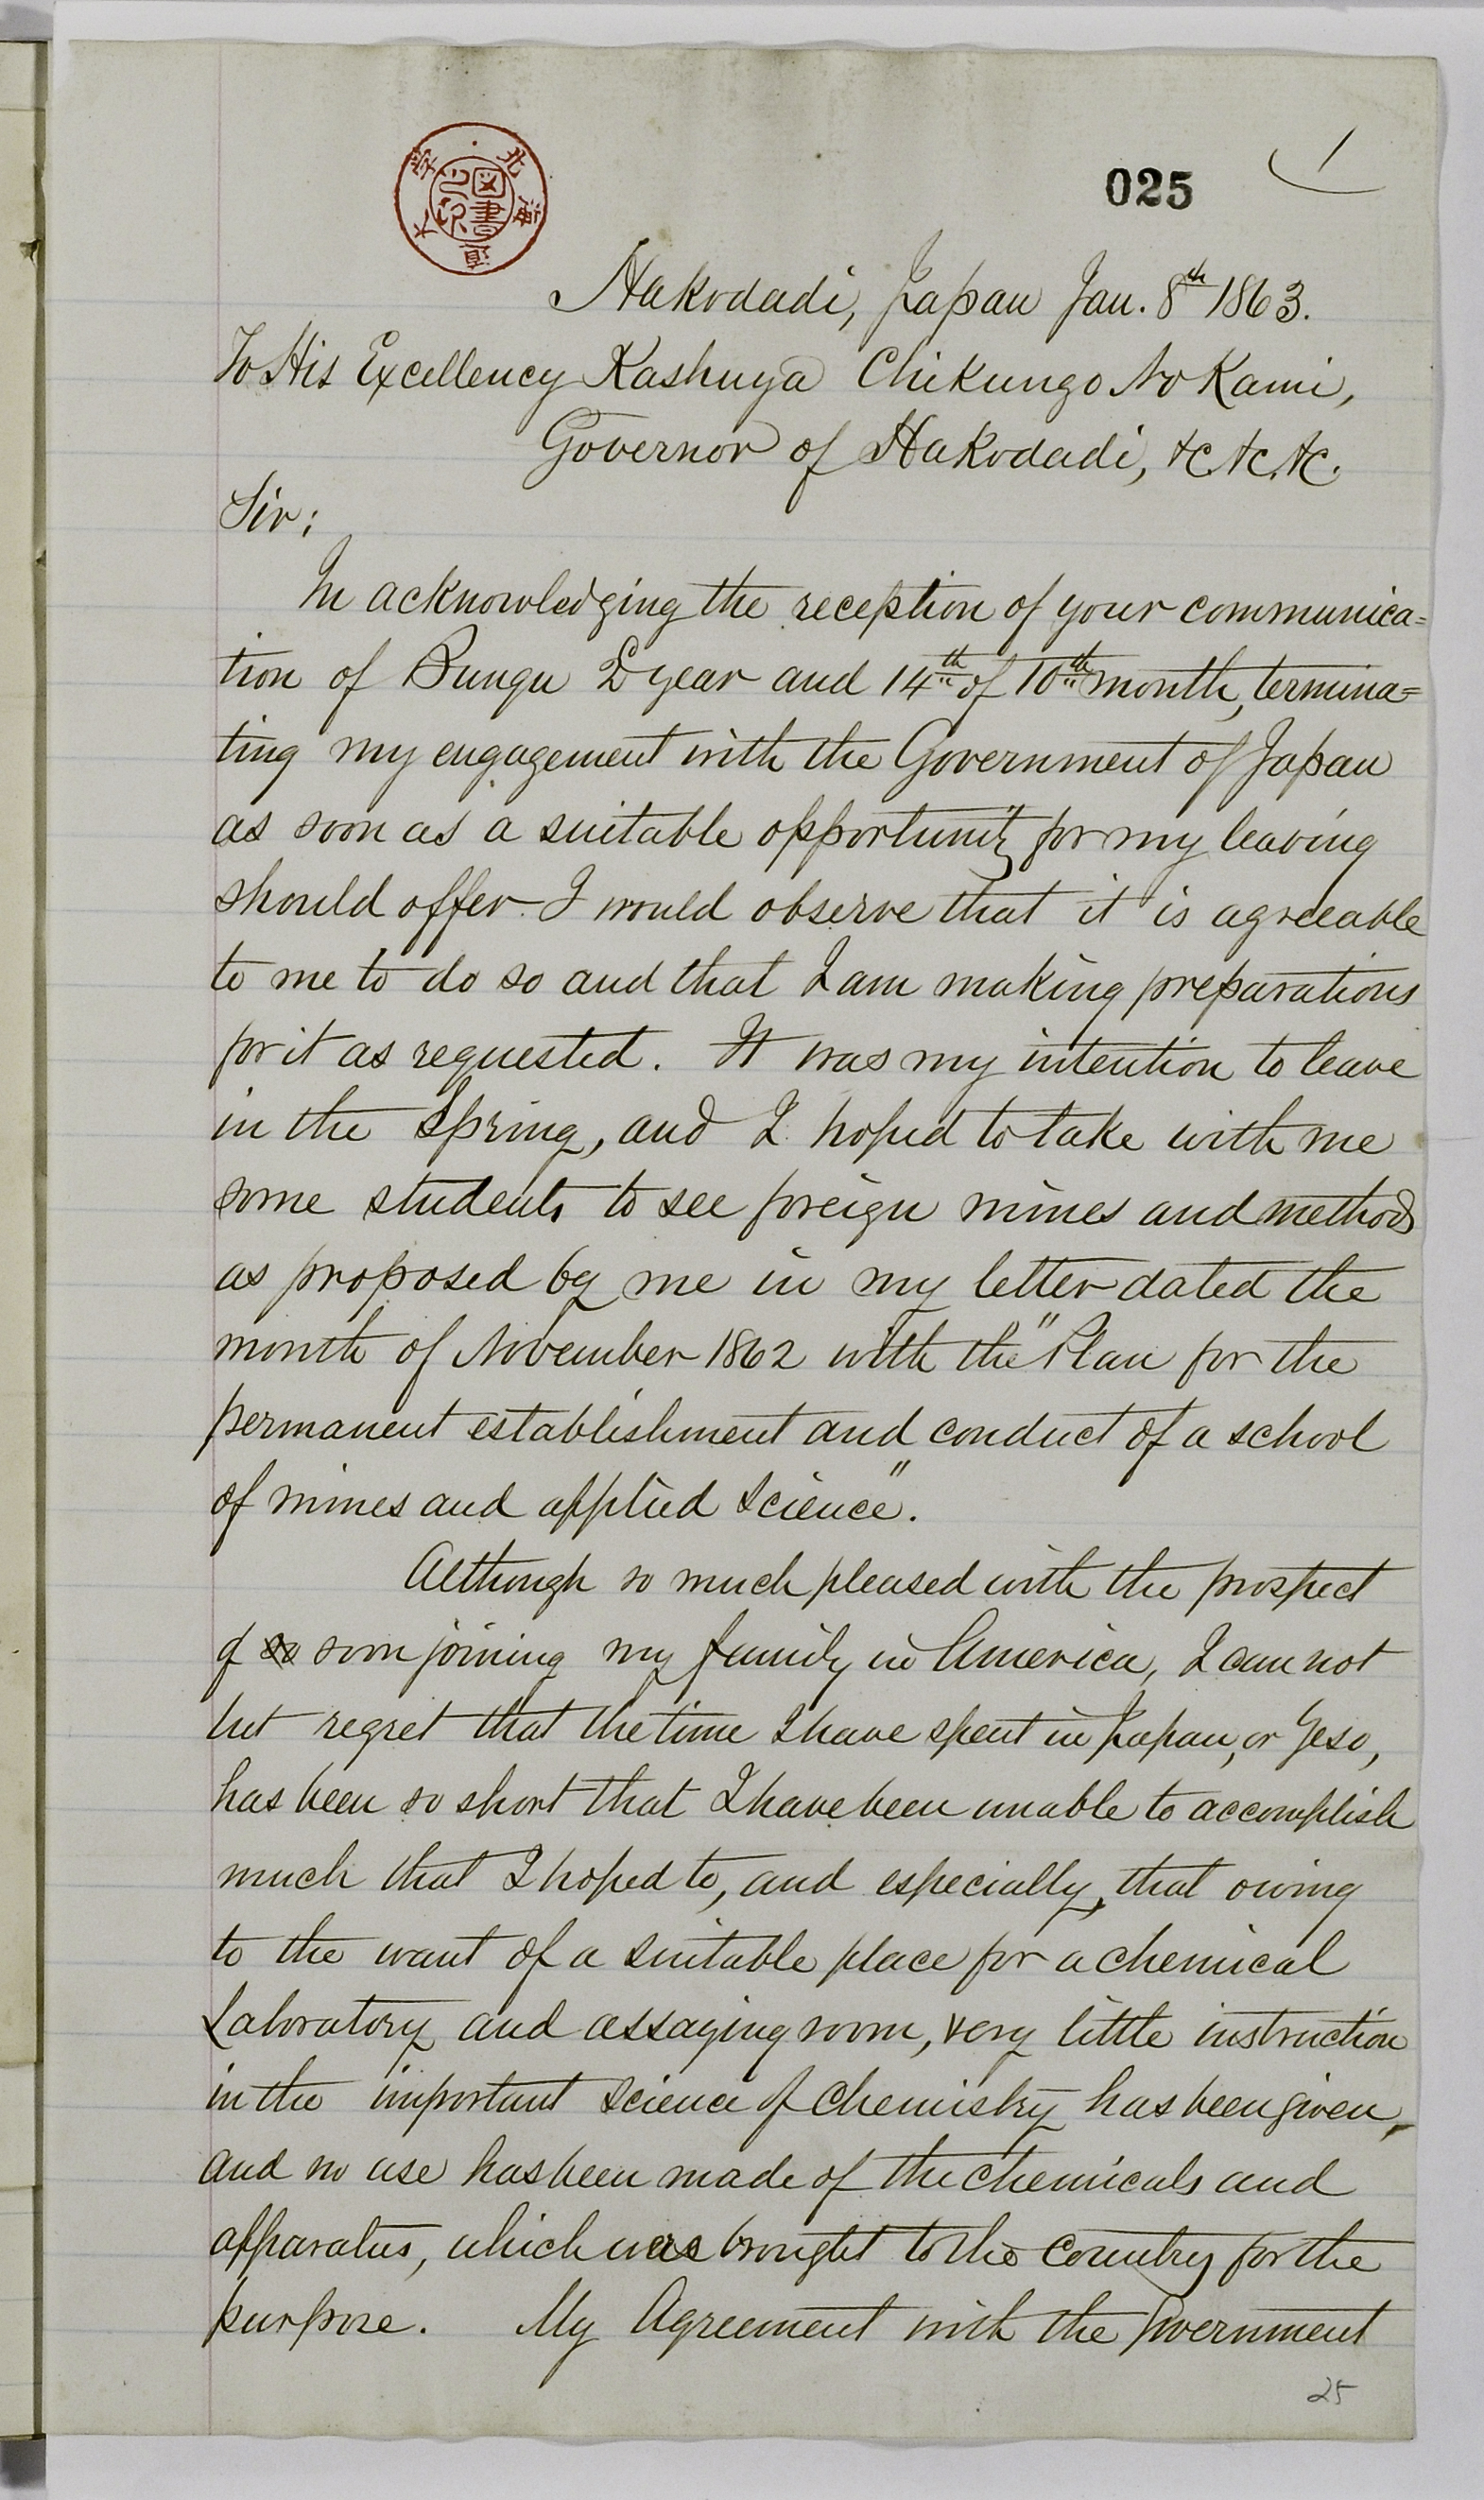 025
1
北海道帝国大学
図書之印
Hakodadi, Japan Jan. 8th 1863.
To His Excellency Kashuya Chikungo No Kami,
Governor of Hakodadi, &c. &c. &c.
Sir;
In acknowledging the reception of your communica=
tion of Bungu 2d year and 14th of 10th month, termina=
ting my engagement with the Government of Japan
as soon as a suitable opportunity for my leaving
should offer I would observe that it is agreeable
to me to do so and that I am making preparations
for it as requested. It was my intention to leave
in the Spring, and I hoped to take with me
some students to see foreign mines and methods
as proposed by me in my letter dated the
month of November 1862 with the "Plan for the
permanent establishment and conduct of a school
of mines and applied science".
Although so much pleased with the prospect
of so soon joining my family in America, I can not
but regret that the time I have spent in Japan, or Yeso,
has been so short that I have been unable to accomplish
much that I hoped to, and especially, that owing
to the want of a suitable place for a chemical
Laboratory and assaying room, very little instruction
in the important science of Chemistry has been given,
and no use has been made of the chemicals and
apparatus, which were brought to the country for the
purpose. My Agreement with the Government
25